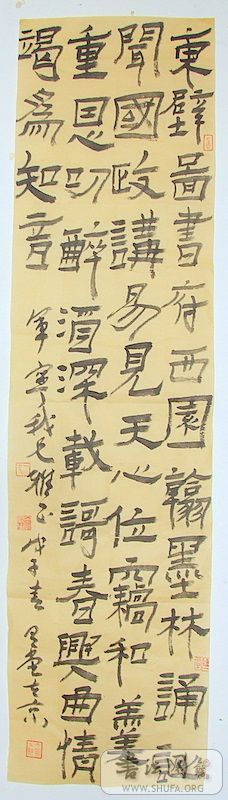 東壁啚書府西園翰墨林誦
聞國政講易見天心位竊和羹
重恩叨醉酒深載謌春興曲情
竭爲知音
雅正戊子春
WWW.SHUFA.ORG